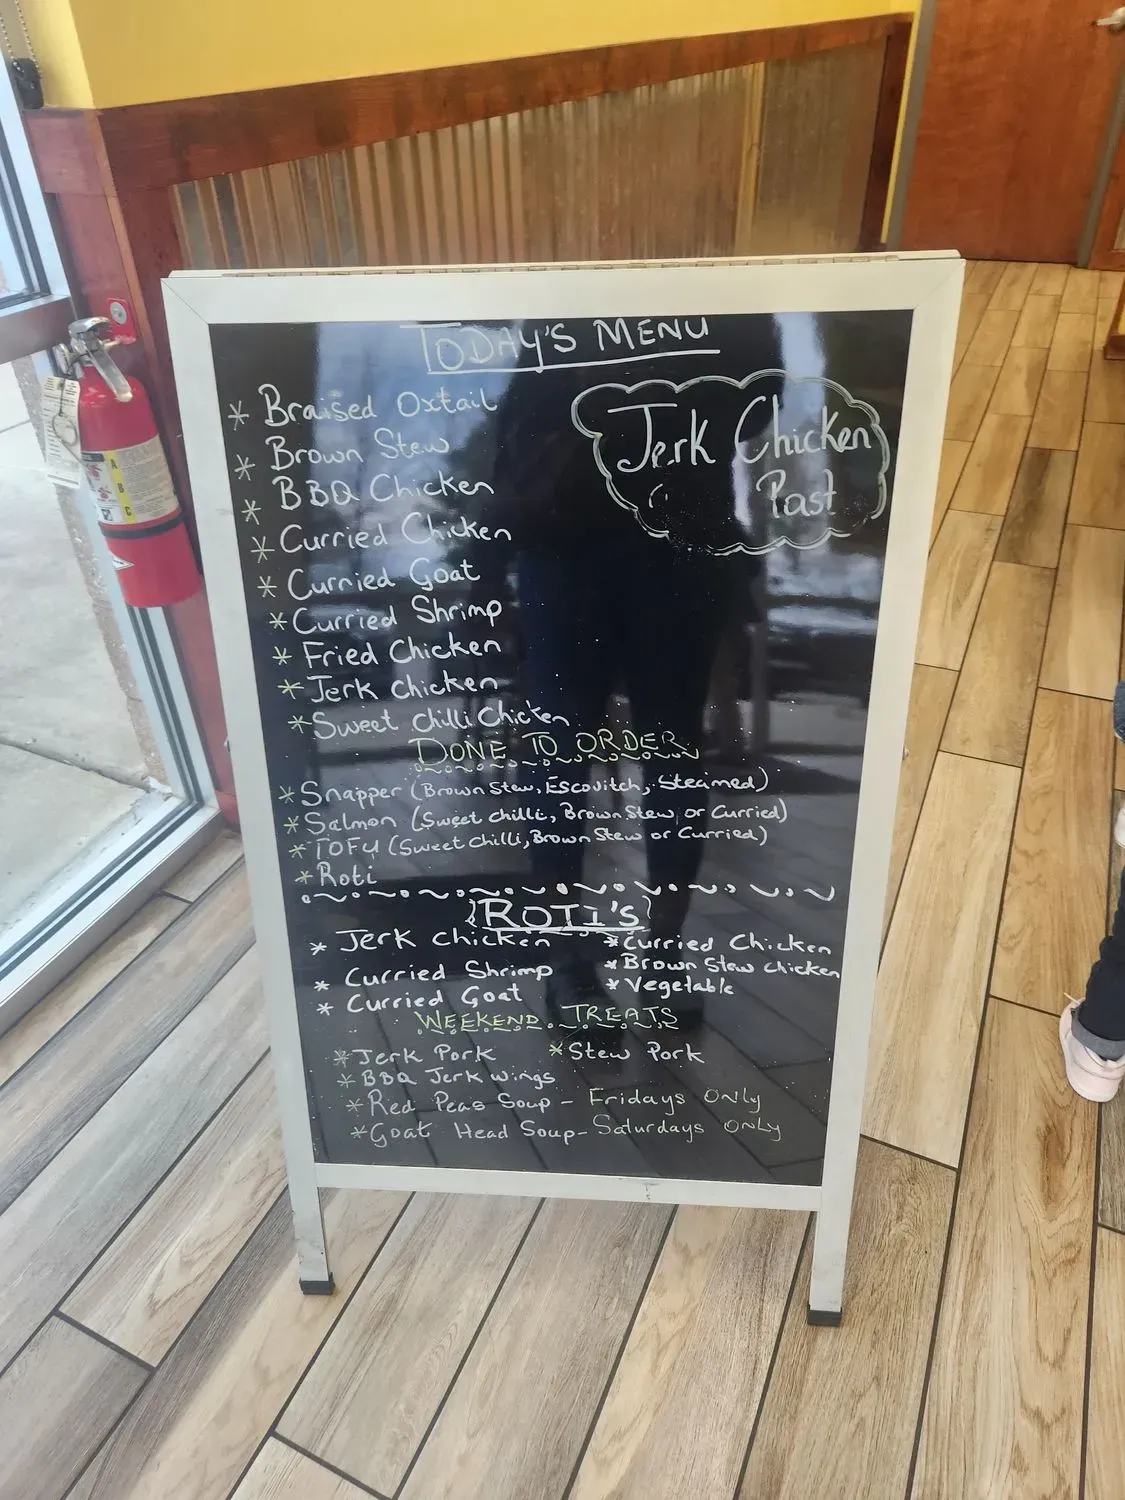 TODAY'S MENU
* Braised Oxtail
* Brown Stew
* BBQ Chicken
* Curried Chicken
* Curried Goat
* Curried Shrimp
* Fried Chicken
* Jerk Chicken
* Sweet Chilli Chicken
Jerk Chicken
Past
DONE TO ORDER
* Snapper (Brown Stew, Escovitch, Steamed)
* Salmon (Sweet chilli, Brown Stew or Curried)
* TOFU (Sweet Chilli, Brown Stew or Curried)
* Roti
ROTI'S
* Jerk chicken
* Curried Shrimp
* Curried Goat
* Curried Chicken
* Brown Stew chicken
* Vegetable
WEEKEND TREATS
* Jerk Pork * Stew Pork
* BBQ Jerk wings
* Red Peas Soup - Fridays ONLY
* Goat Head Soup - Saturdays ONLY
A
B
C